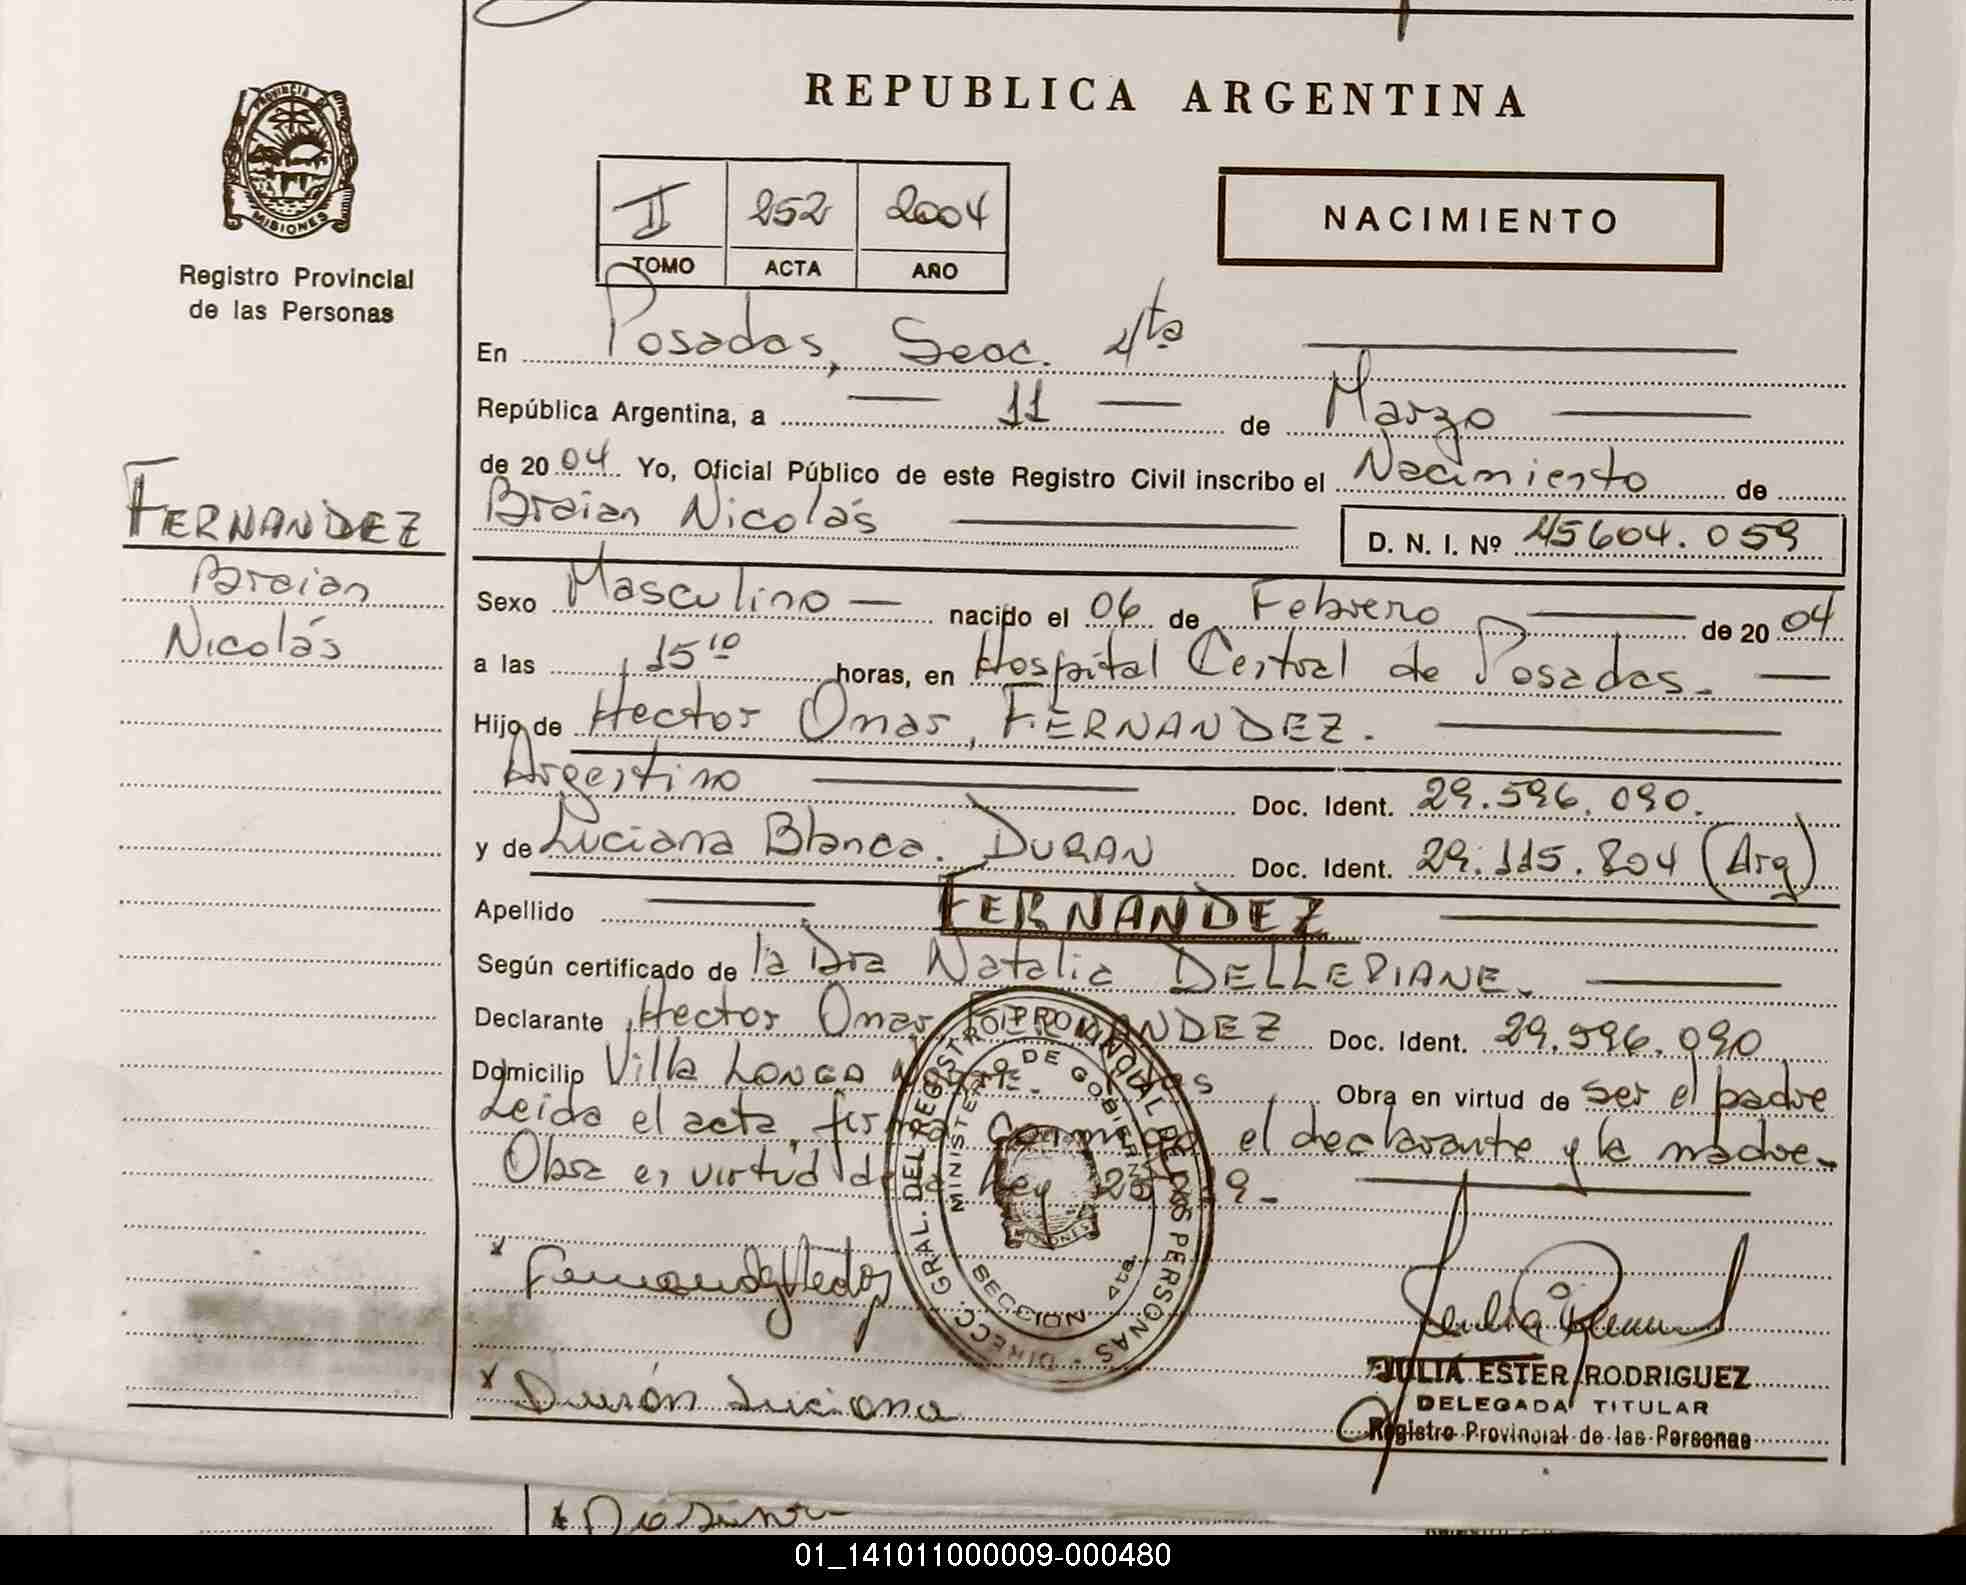 REPUBLICA ARGENTINA
PROVINCIA DE
MISIONES
Registro Provincial
de las Personas
II 252 2004
TOMO ACTA AÑO
NACIMIENTO
En Posadas, Secc. 4ta
República Argentina, a 11 de Marzo
de 2004 Yo, Oficial Público de este Registro Civil inscribo el Nacimiento de
Braian Nicolás
D. N. I. Nº 45604.059
FERNANDEZ
Braian
Nicolás
Sexo Masculino nacido el 06 de Febrero de 2004
a las 15 10 horas, en Hospital Central de Posadas.
Hijo de Hector Omar, FERNANDEZ.
Argentino Doc. Ident. 29.596.090.
y de Luciana Blanca. DURAN Doc. Ident. 29.115.804 (Arg)
Apellido FERNANDEZ
Según certificado de la Dra Natalia DELLEPIANE.
Declarante Hector Omar FERNANDEZ Doc. Ident. 29.596.090
Domicilio Villa LONGA Obra en virtud de ser el padre
Leida el acta, firma conmigo el declarante y la madre.
Obra en virtud de la Ley
DIRECC. GRAL. DEL REGISTRO PROVINCIAL DE LAS PERSONAS
MINISTERIO DE GOBIERNO
MISIONES
SECCION 4ta
x Fernandez Hector
x Durán Luciana
JULIA ESTER RODRIGUEZ
DELEGADA TITULAR
Registro Provincial de las Personas
01_141011000009-000480